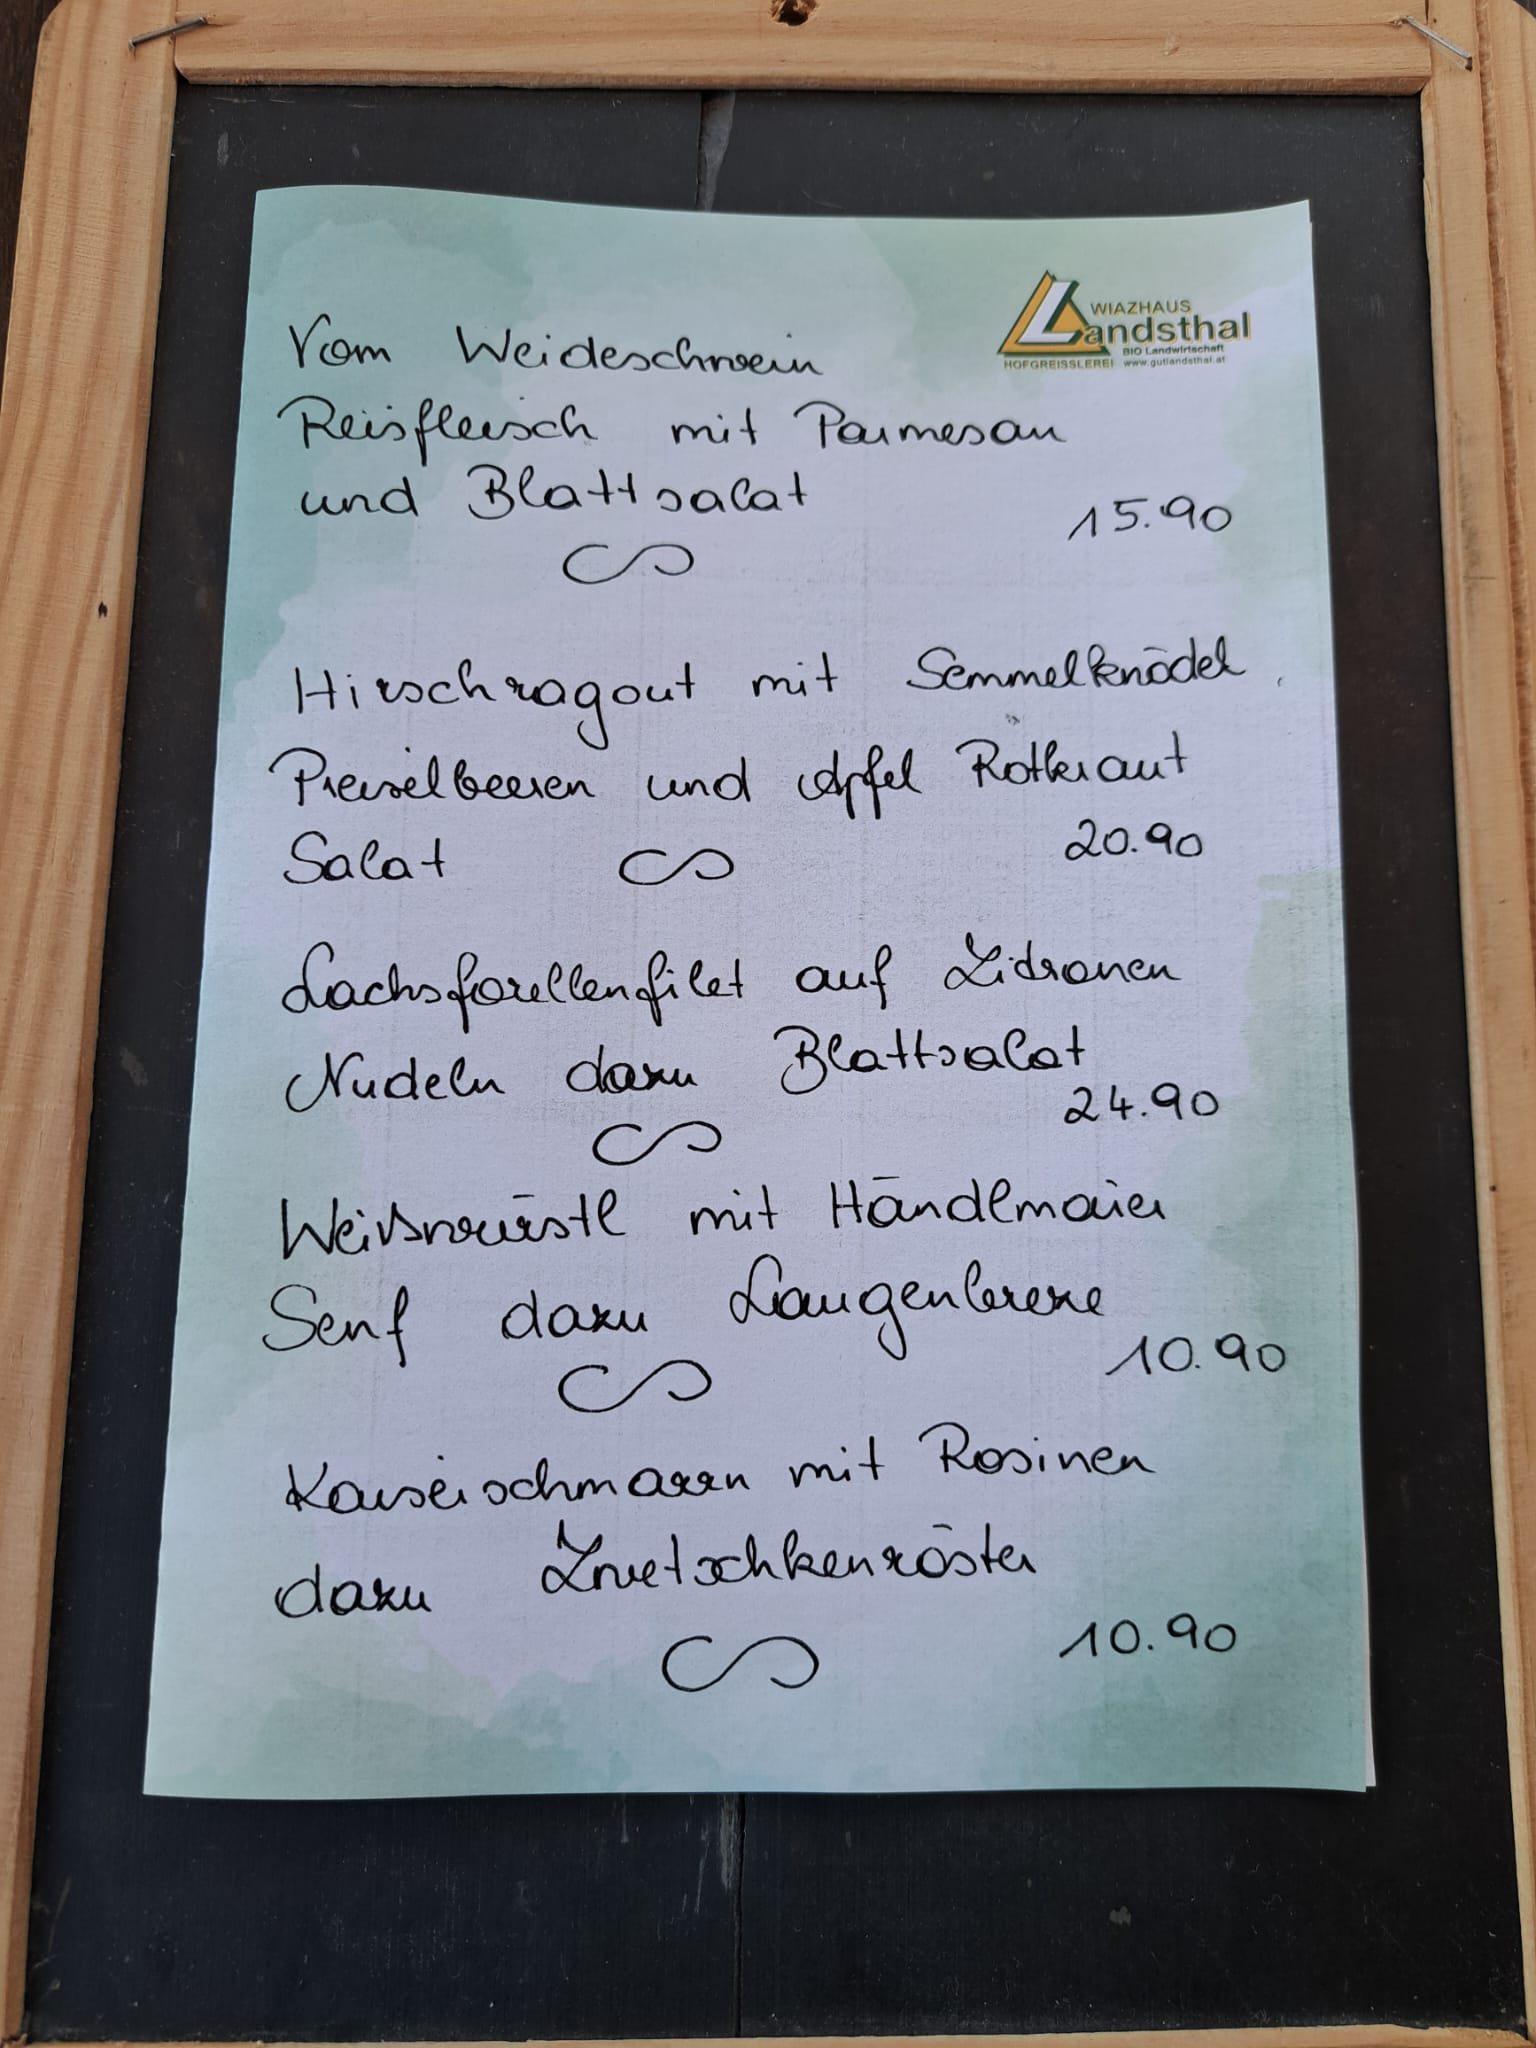 WIAZHAUS
Landsthal
BIO Landwirtschaft
HOFGREISSLEREI www.gutlandsthal.at
Vom Weideschwein
Reisfleisch mit Parmesan
und Blattsalat
15.90
Hirschragout mit Semmelknödel
Preiselbeeren und Apfel Rotkraut
Salat 20.90
Lachsforellenfilet auf Zitronen
Nudeln dazu Blattsalat
24.90
Weißwürstl mit Händlmaier
Senf dazu Laugenbreze
10.90
Kaiserschmarrn mit Rosinen
dazu Zwetschkenröster
10.90